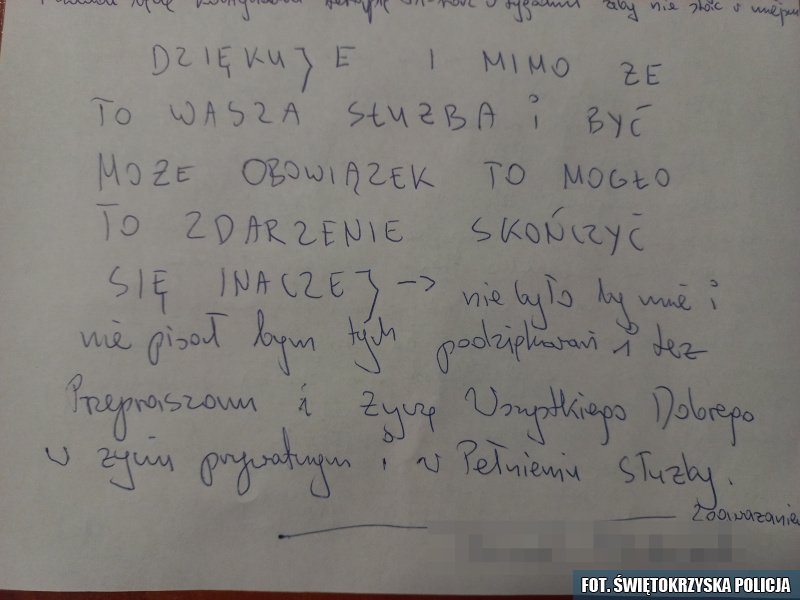 aby nie stać w miejscu
DZIĘKUJE I MIMO ZE
TO WASZA SŁUZBA i BYĆ
MOŻE OBOWIĄZEK TO MOGŁO
TO ZDARZENIE SKOŃCZYĆ
SIĘ INACZEJ -> nie było by mnie i
nie pisał bym tych podziękowań i też
Przepraszam i życzę Wszystkiego Dobrego
w życiu prywatnym i w Pełnieniu służby.
FOT. ŚWIĘTOKRZYSKA POLICJA